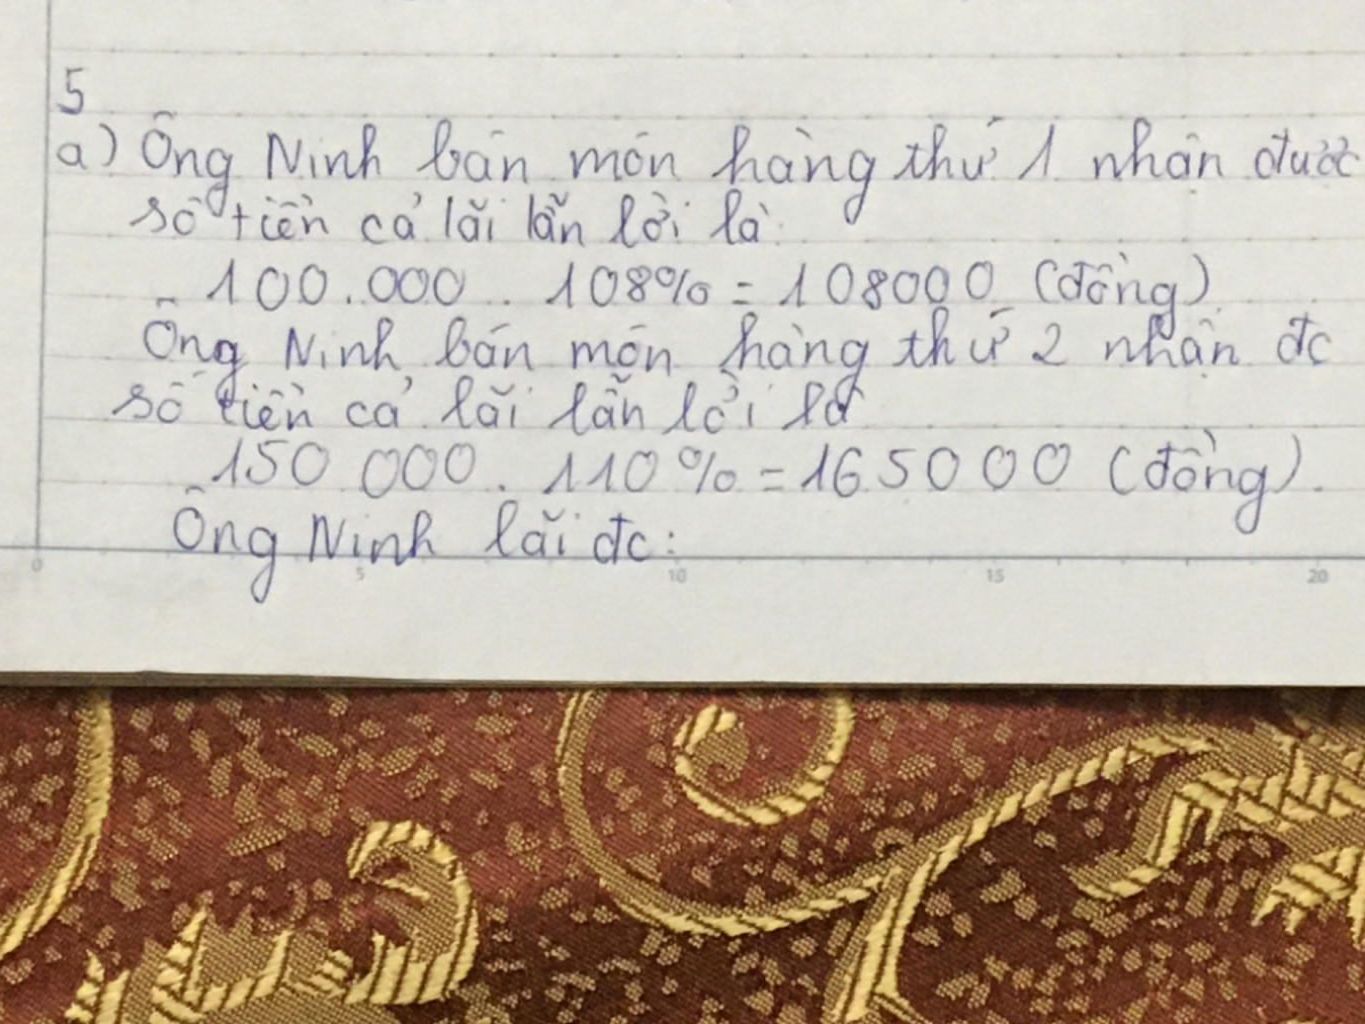 5
a) Ông Ninh bán món hàng thứ 1 nhận được
số tiền cả lãi lẫn lời là
100.000 . 108% = 108000 (đồng)
Ông Ninh bán món hàng thứ 2 nhận đc
số tiền cả lãi lẫn lời là
150 000 . 110% = 165000 (đồng).
Ông Ninh lãi đc:
0 5 10 15 20